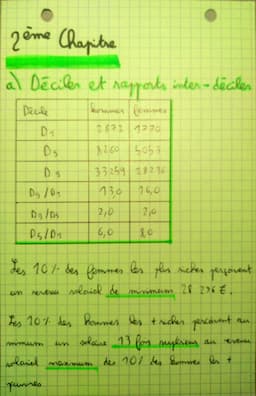 2ème Chapitre
a) Déciles et rapports inter-déciles
Décile hommes femmes
D1 1770
D5 8260 5053
D9 33259 28236
D9/D1 13,0 16,0
D9/D5 2,0
D5/D1 6,0 8,0
Les 10% des femmes les plus riches perçoivent
un revenu salarial de minimum 28 236 €.
Les 10% des hommes les + riches perçoivent au
minimum un salaire 13 fois supérieur au revenu
salarial maximum des 10% des hommes les +
pauvres